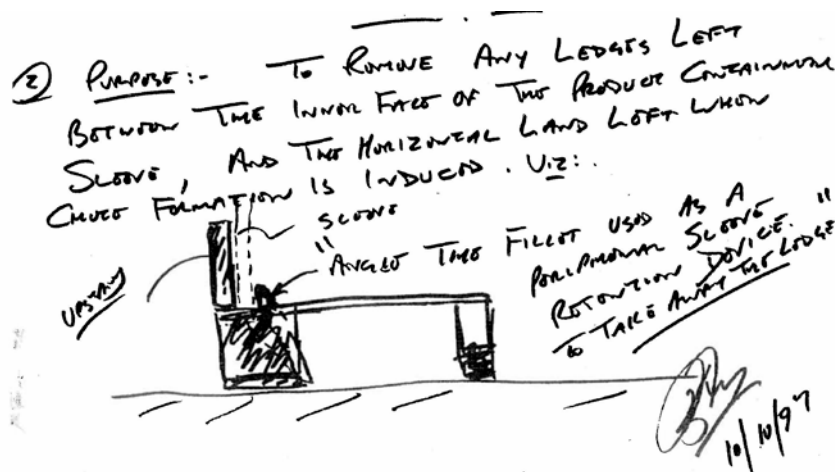 ② PURPOSE:- TO REMOVE ANY LEDGES LEFT
BETWEEN THE INNER FACE OF THE PRODUCT CONTAINMENT
SLEEVE, AND THE HORIZONTAL LAND LEFT WHEN
CHUTE FORMATION IS INDUCED. VIZ:.
SLEEVE
UPSTAND
"ANGLE THE FILLET USED AS A
PERIPHERAL SLEEVE
RETENTION DEVICE."
TO TAKE AWAY THE LEDGE
10/10/97